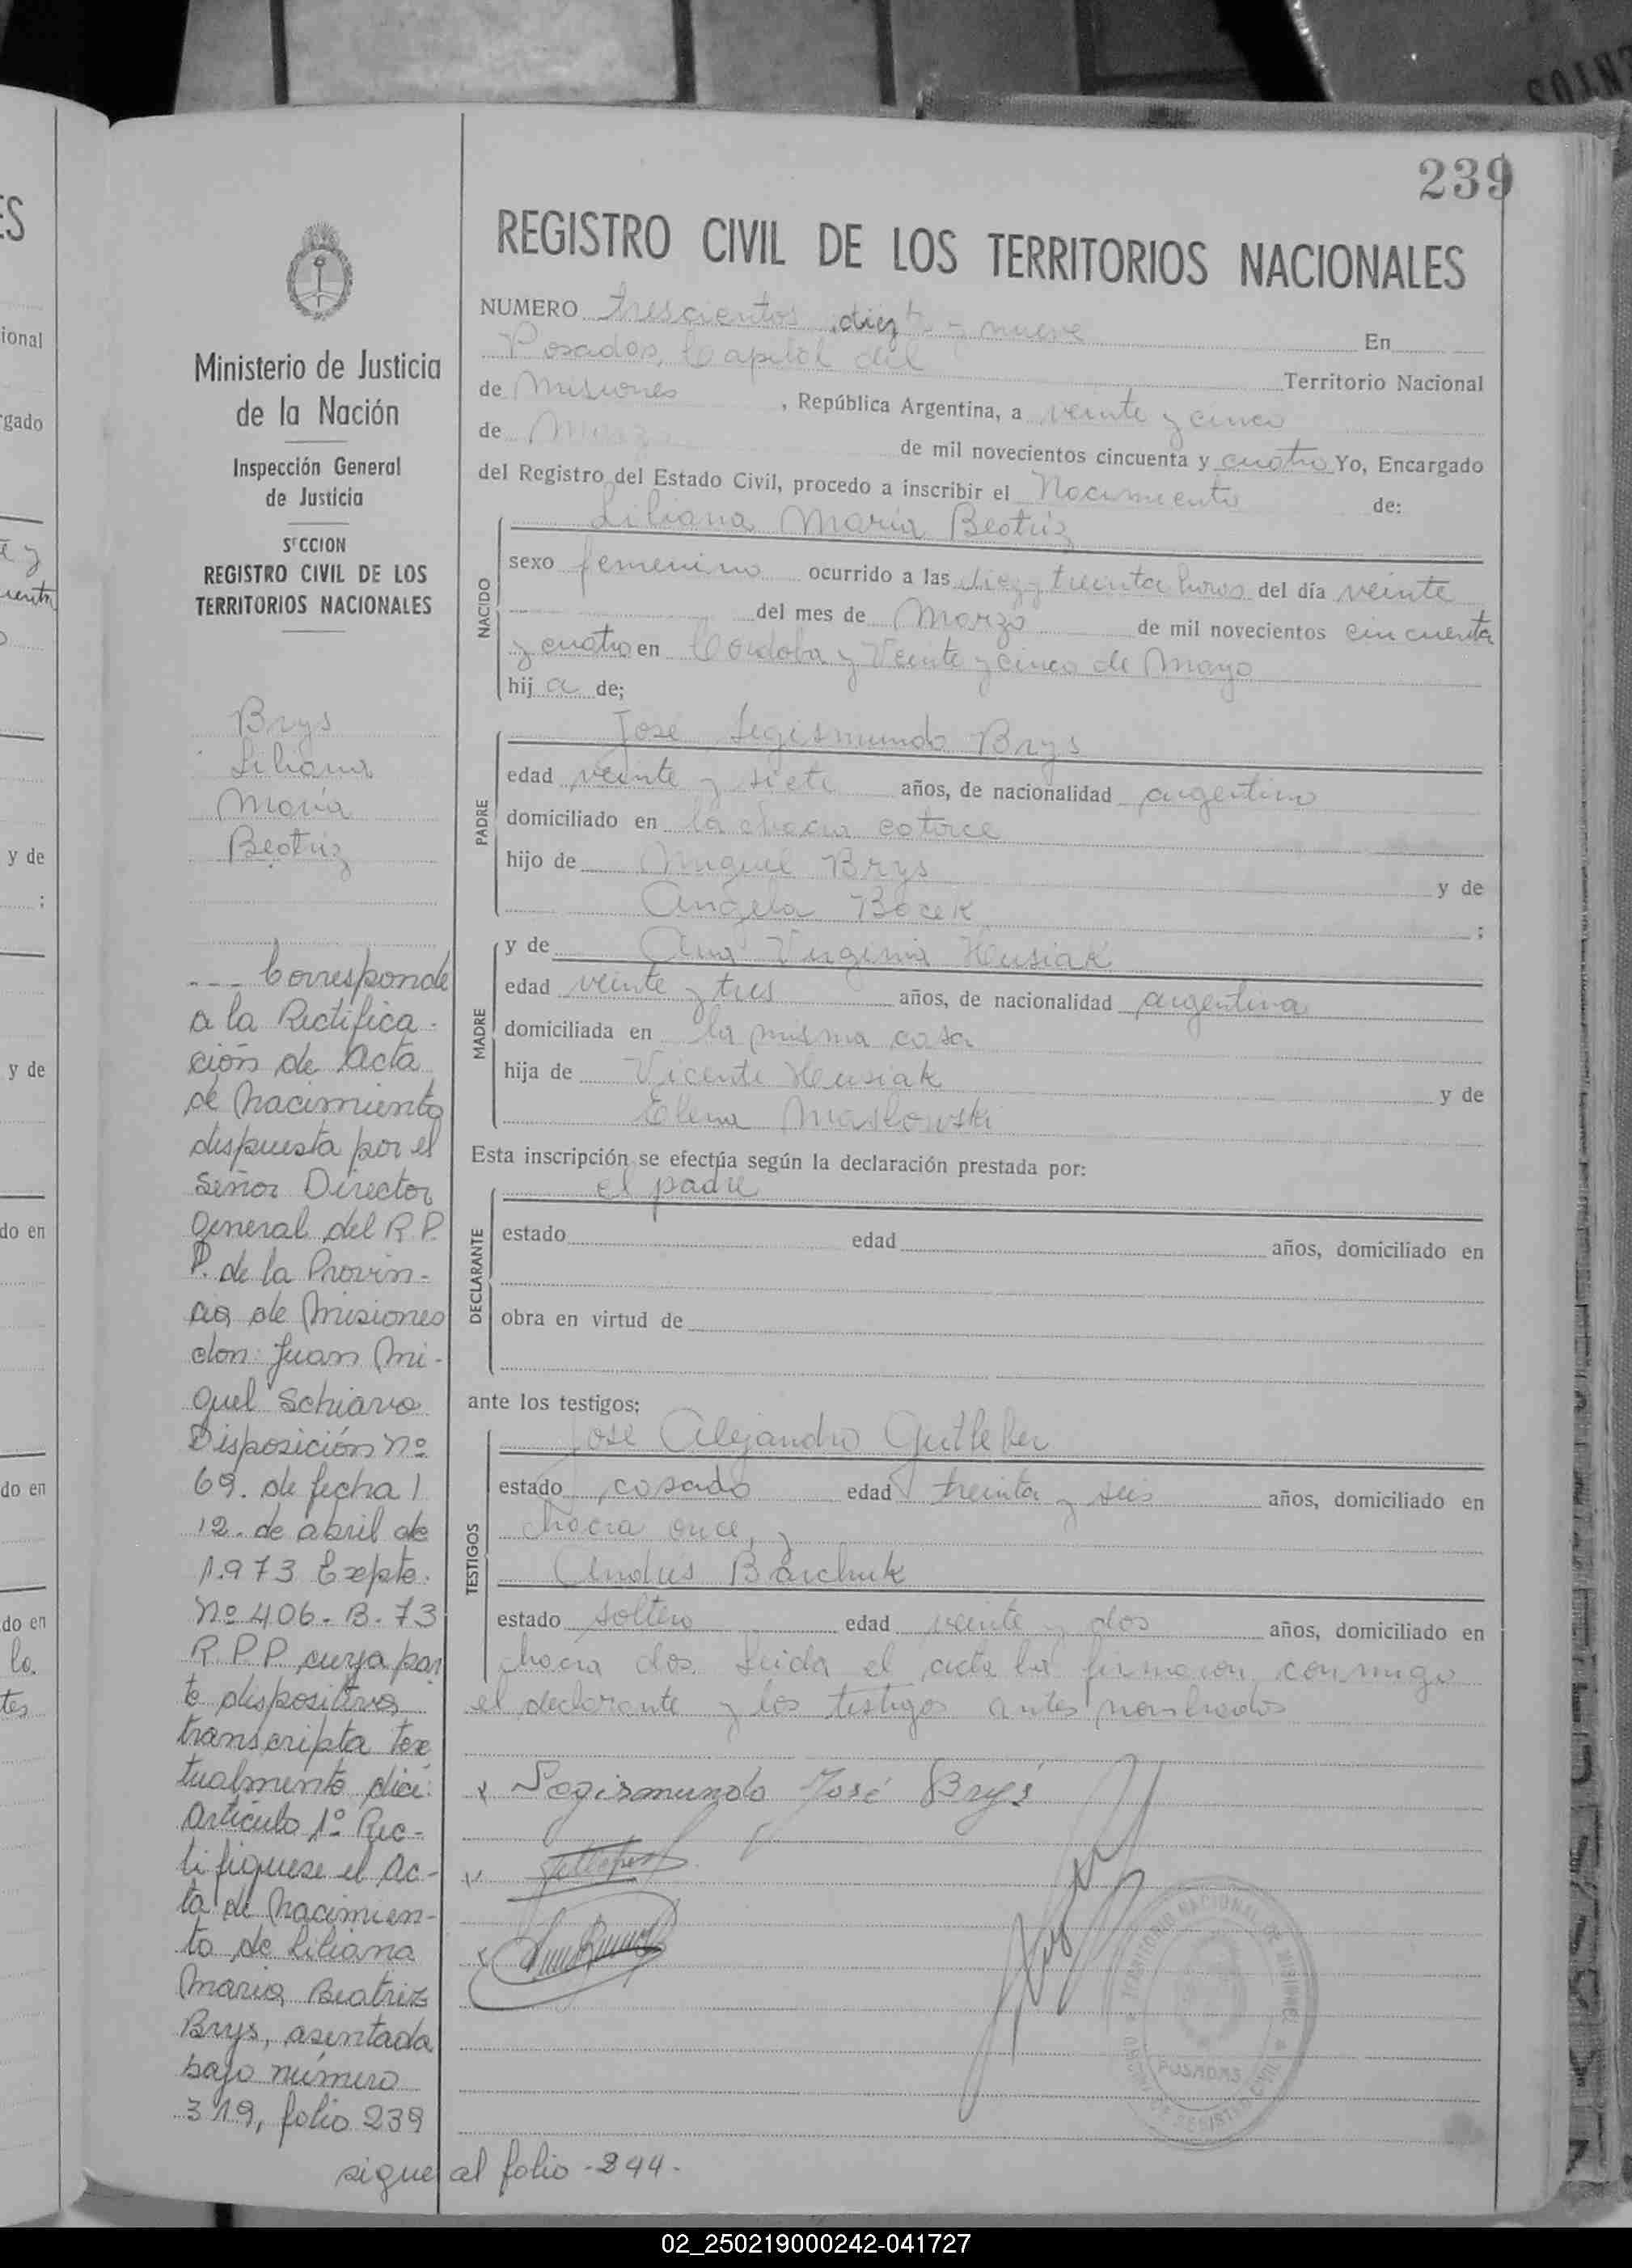 239
REGISTRO CIVIL DE LOS TERRITORIOS NACIONALES
NUMERO trescientos diez y nueve En
Posadas, Capital del Territorio Nacional
de Misiones, República Argentina, a veinte y cinco
de Marzo de mil novecientos cincuenta y cuatro Yo, Encargado
del Registro del Estado Civil, procedo a inscribir el Nacimiento de:
NACIDO
Liliana María Beatriz
sexo femenino ocurrido a las diez y treinta horas del día veinte
del mes de Marzo de mil novecientos cincuenta
y cuatro en Cordoba y Veinte y cinco de Mayo
hija de;
PADRE
José Segismundo Brys
edad veinte y siete años, de nacionalidad argentino
domiciliado en la chacra catorce
hijo de Miguel Brys y de
Angela Bocek ;
MADRE
y de Ana Virginia Heusiak
edad veinte y tres años, de nacionalidad argentina
domiciliada en la misma casa
hija de Vicente Heusiak y de
Elena Maslowski
Esta inscripción se efectúa según la declaración prestada por:
DECLARANTE
el padre
estado edad años, domiciliado en
obra en virtud de
ante los testigos:
TESTIGOS
José Alejandro Gutleber
estado casado edad treinta y seis años, domiciliado en
chacra once, y
Andrés Baichuk
estado soltero edad veinte y dos años, domiciliado en
chacra dos. Leida el acta la firmaron conmigo
el declarante y los testigos antes nombrados
Segismundo José Brys
TERRITORIO NACIONAL DE MISIONES
POSADAS
Ministerio de Justicia
de la Nación
Inspección General
de Justicia
SECCION
REGISTRO CIVIL DE LOS
TERRITORIOS NACIONALES
Brys
Liliana
María
Beatriz
--- Corresponde
a la Rectifica-
ción de Acta
de Nacimiento
dispuesta por el
Señor Director
General del R.P.
P. de la Provin-
cia de Misiones
don: Juan Mi-
guel Schiavo
Disposición Nº
69. de fecha
12. de abril de
1.973 Expte.
Nº 406-B-73
R P P cuya par
te dispositiva
transcripta tex
tualmente dice:
Artículo 1º Rec-
tifiquese el Ac-
ta de Nacimien-
to de Liliana
Maria Beatriz
Brys, asentada
bajo número
319, folio 239
sigue al folio -244-
02_250219000242-041727